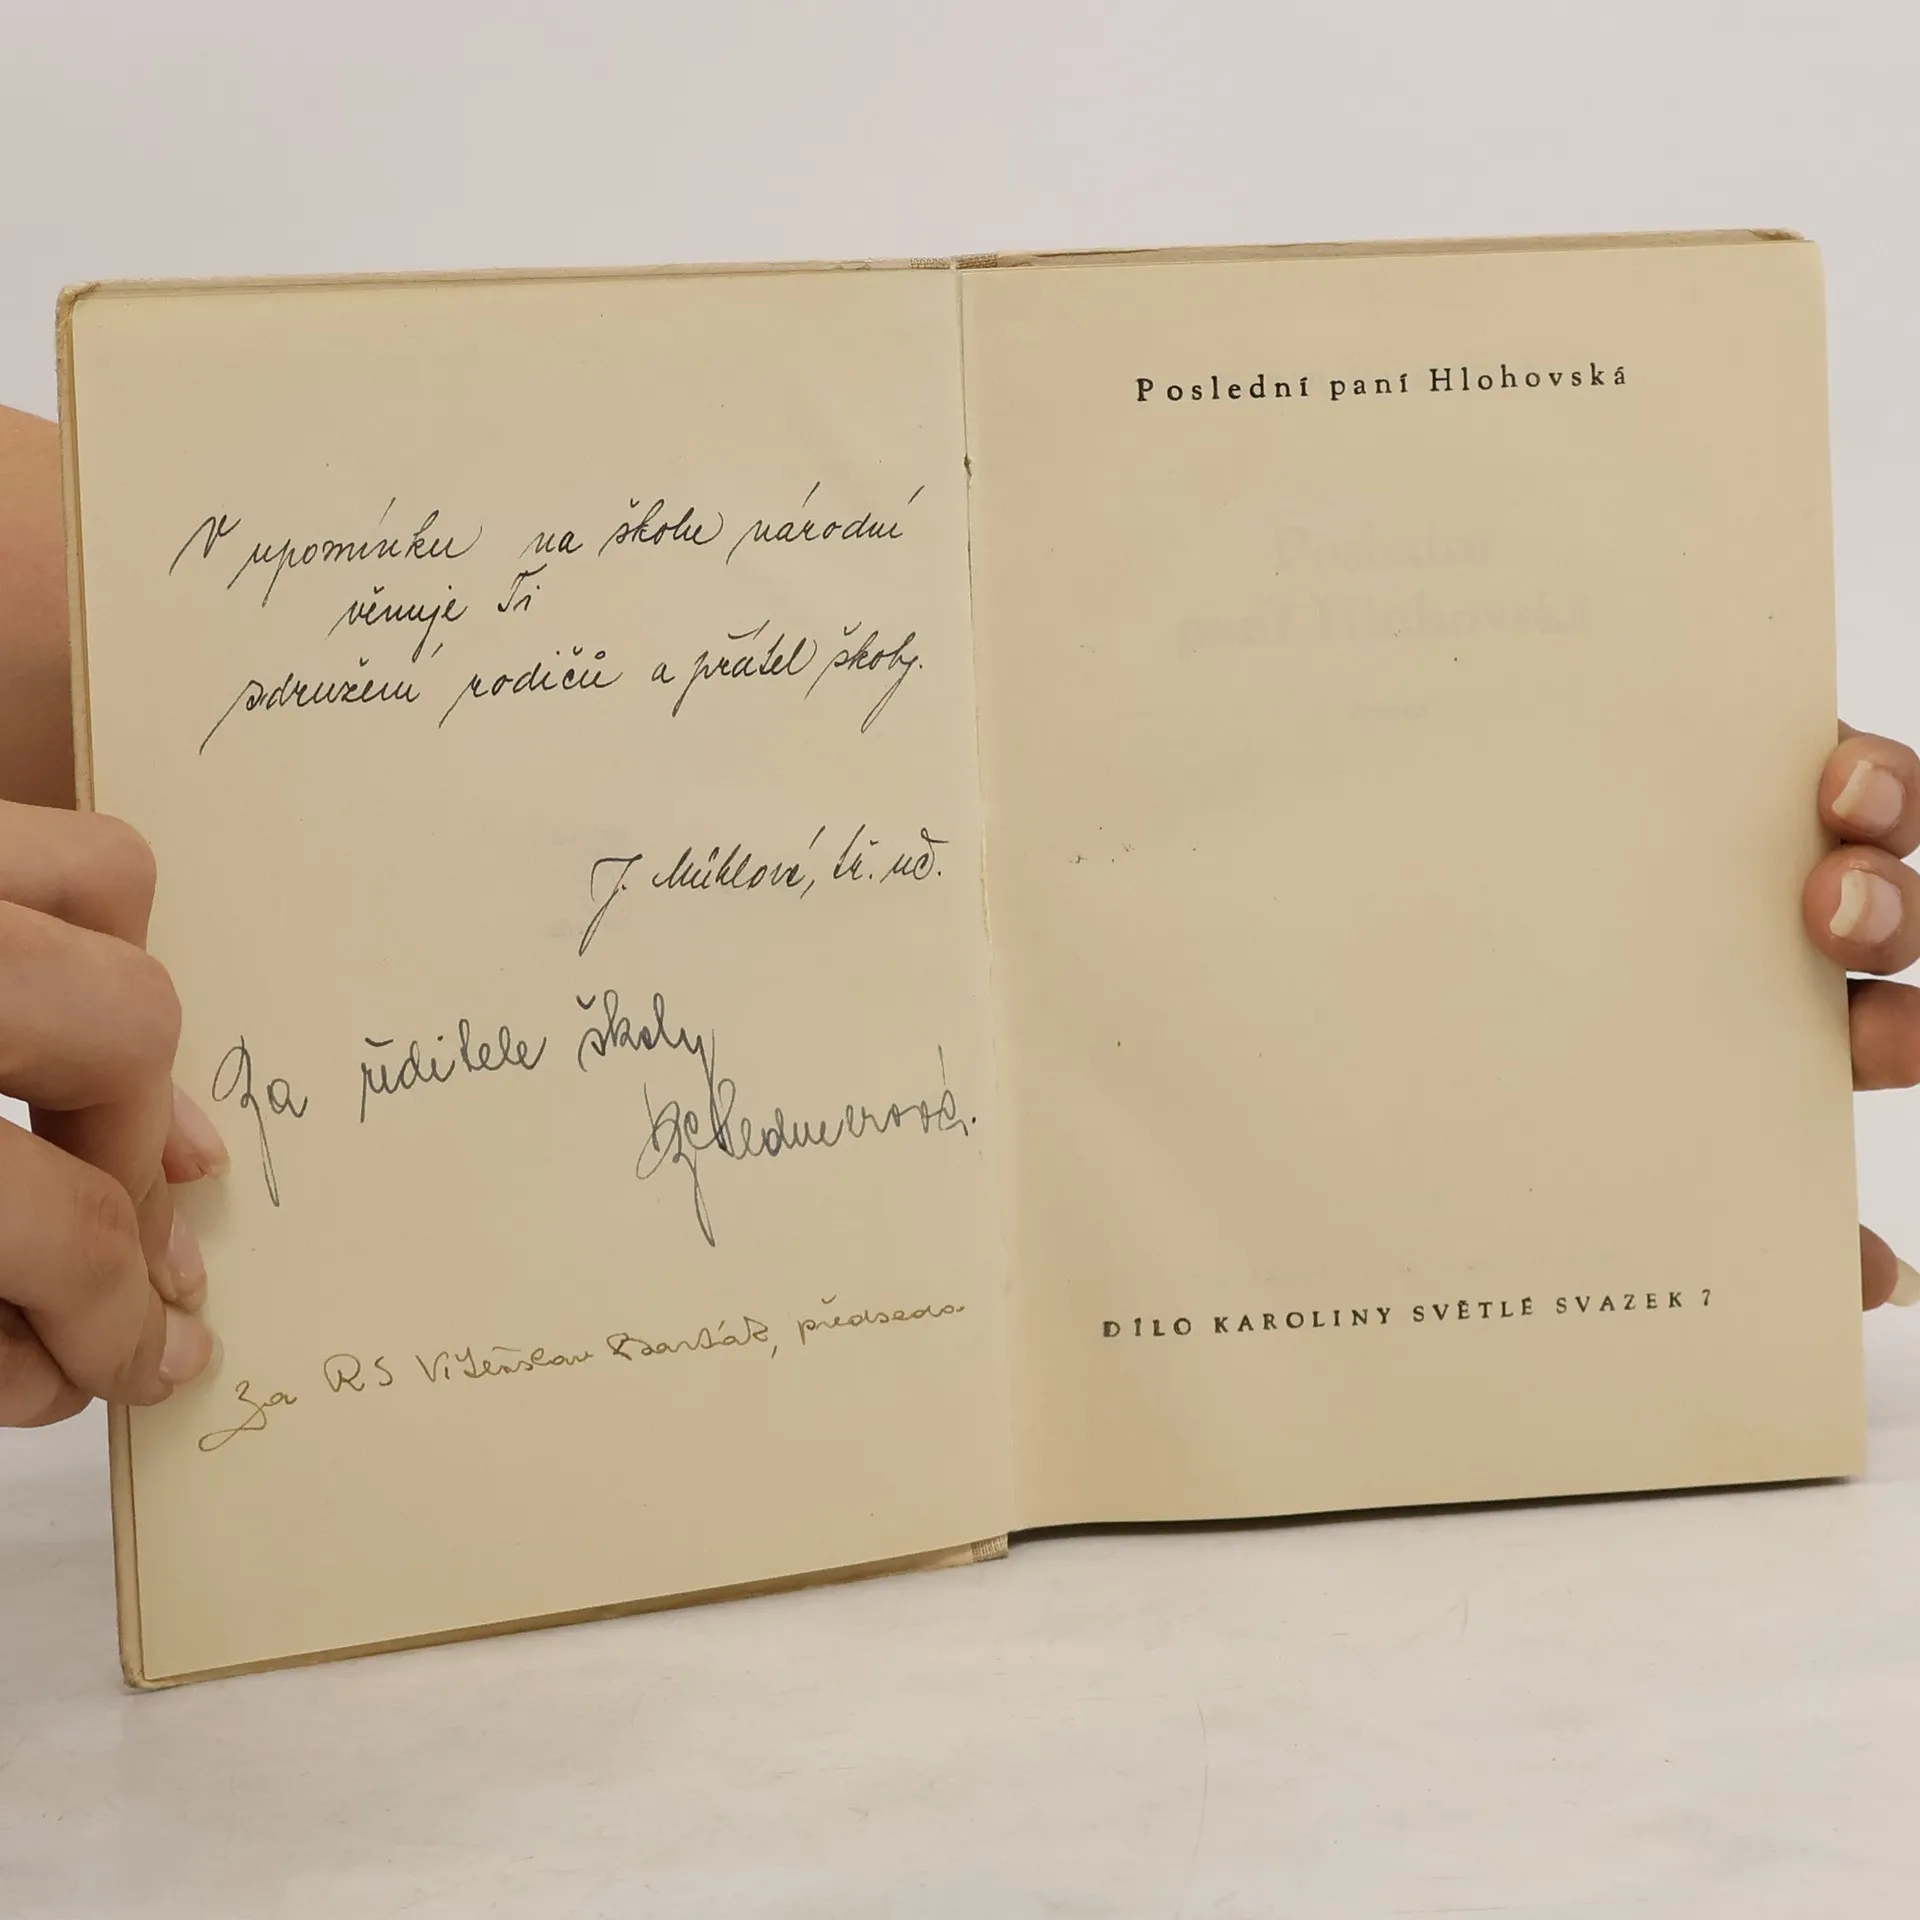 V upomínku na škole národní
věnuje Ti
sdružení rodičů a přátel školy.
J. Mühlová, tř. uč.
Za ředitele školy
Za RS Vítězslav Barták, předseda
Poslední paní Hlohovská
DÍLO KAROLINY SVĚTLÉ SVAZEK 7